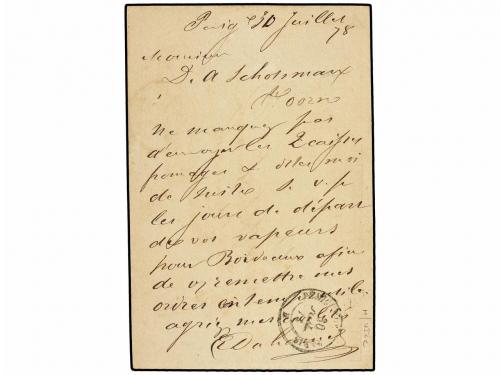 Paris 30 Juillet
78
Monsieur
D. A Schotsman
Hoorn
Ne manquez pas
d'envoyer les 2 caisses
fromages & dites moi
de suite s. v. p
les jours de départ
des vos vapeurs
pour Bordeaux afin
de vs remettre mes
ordres en temps utile
agréez mes